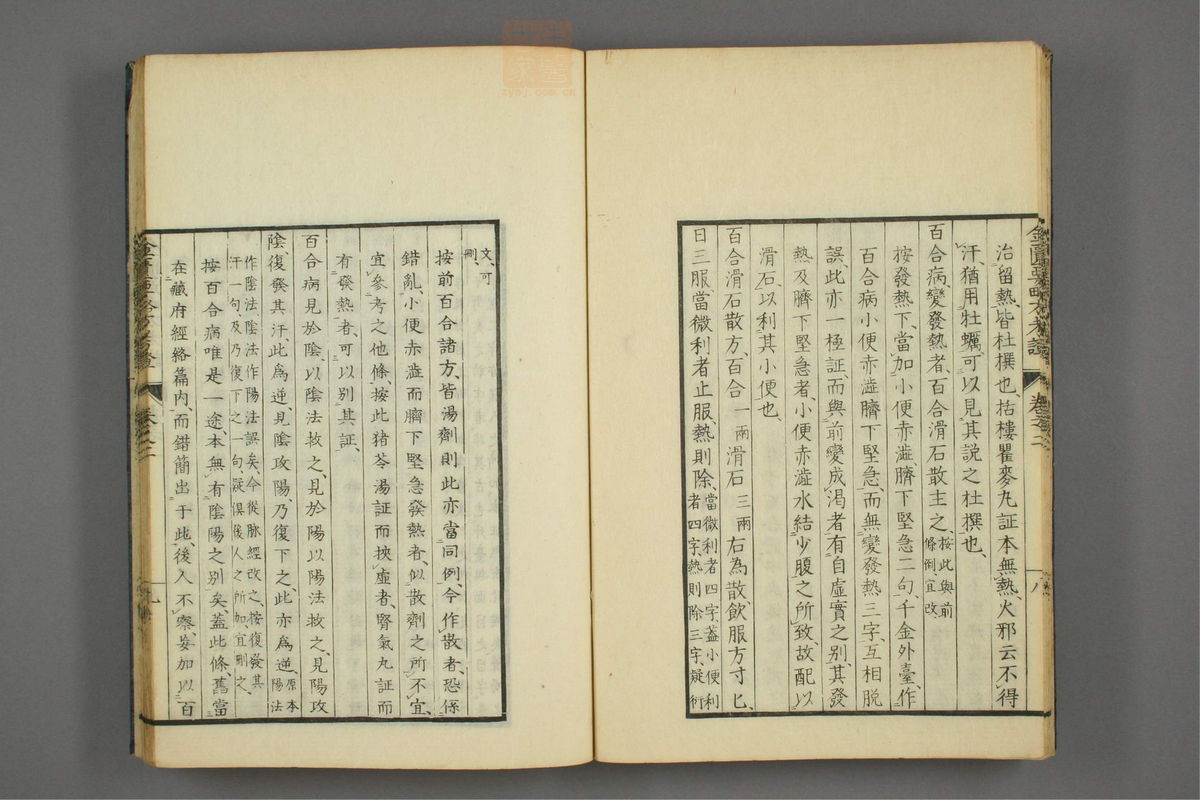 治留熱、皆杜撰也、括樓瞿麥丸証本無熱、火邪云不得
汗、猶用牡蠣、可以見其説之杜撰也、
百合病、變發熱者、百合滑石散主之、按此與前條倒宜改、
按發熱下、當加小便赤澁臍下堅急二句、千金外臺、作
百合病小便赤澁臍下堅急、而無變發熱三字、互相脱
誤、此亦一極証、而與前變成渇者、有自虛實之別、其發
熱及臍下堅急者、小便赤澁水結少腹之所致、故配以
滑石、以利其小便也、
百合滑石散方、百合一兩滑石三兩右為散飲服方寸匕、
日三服當微利者止服、熱則除、當微利者四字、蓋小便利者四字、熱則除三字、疑衍
文、可刪、
按前百合諸方、皆湯劑則此亦當同例、今作散者、恐係
錯亂、小便赤澁而臍下堅急發熱者、似散劑之所不宜、
宜參考之他條、按此猪苓湯証而挾虛者、腎氣丸証而
有發熱者、可以別其証、
百合病見於陰以陰法救之、見於陽以陽法救之、見陽攻
陰、復發其汗、此爲逆、見陰攻陽、乃復下之、此亦爲逆、原本陽法
作陰法、陰法作陽法誤矣、今從脉經改之、按復發其汗一句、及乃復下之一句、疑俱後人之所加宜刪之、
按百合病唯是一途、本無有陰陽之別矣、蓋此條、舊當
在藏府經絡篇内、而錯簡出于此、後人不察、妄加以百
卷之二
八
卷之二
九
zybj.com.cn